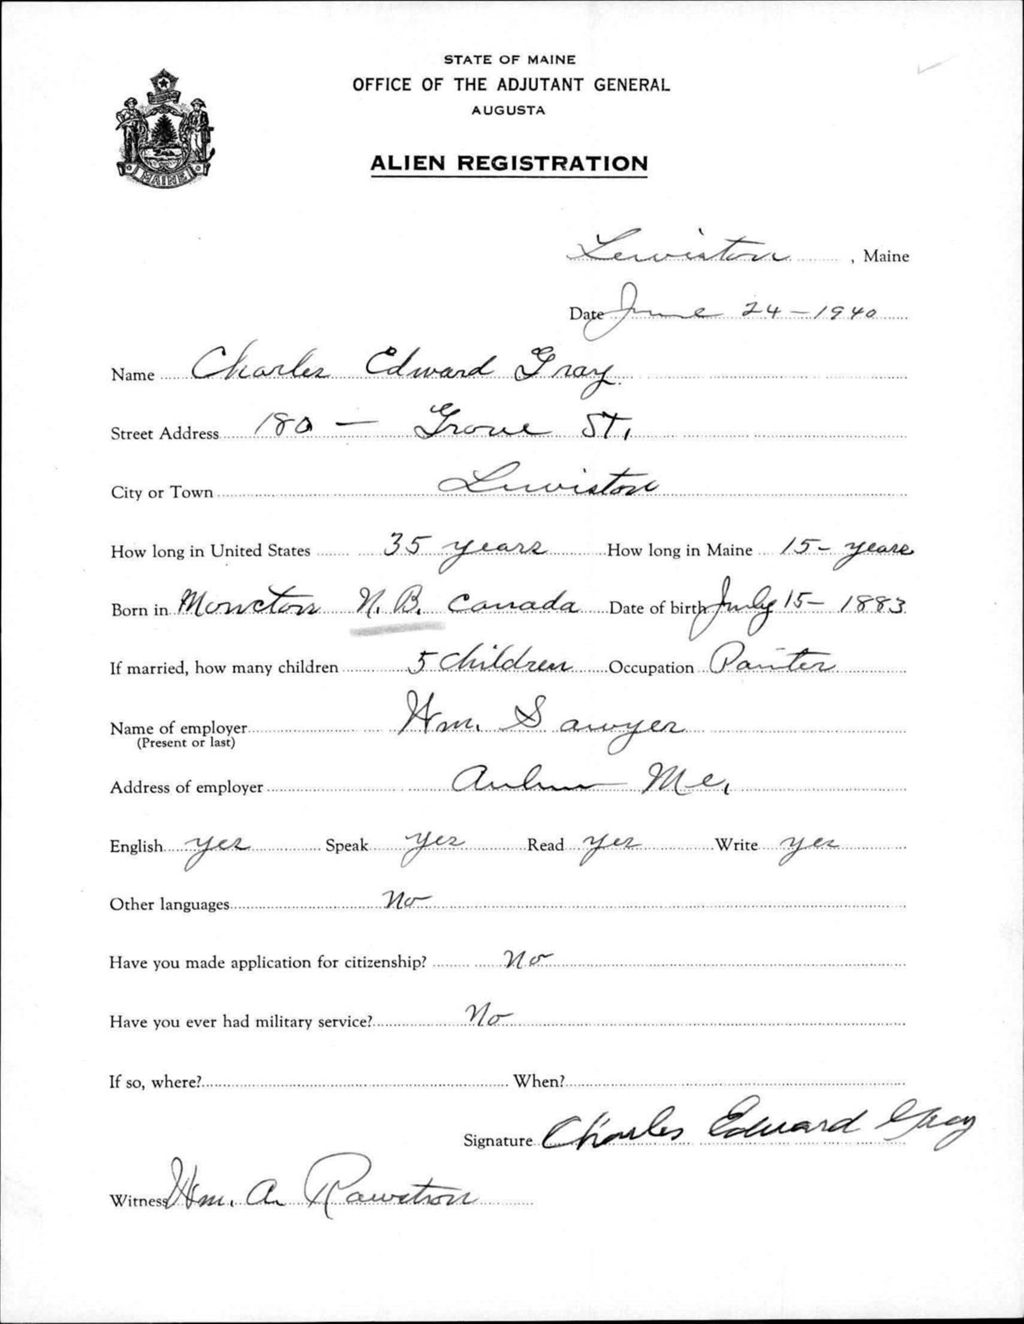 STATE OF MAINE
OFFICE OF THE ADJUTANT GENERAL
AUGUSTA
ALIEN REGISTRATION
MAINE
Lewiston, Maine
Date June 24-1940
Name Charles Edward Gray
Street Address 180 - Grove St.
City or Town Lewiston
How long in United States 35 years How long in Maine 15- years
Born in Moncton N.B. Canada Date of birth July 15- 1883
If married, how many children 5 Children Occupation Painter
Name of employer Wm. Sawyer
(Present or last)
Address of employer Auburn Me.
English yes Speak yes Read yes Write yes
Other languages No
Have you made application for citizenship? No
Have you ever had military service? No
If so, where? When?
Signature Charles Edward Gray
Witness Wm. A. Rawstron